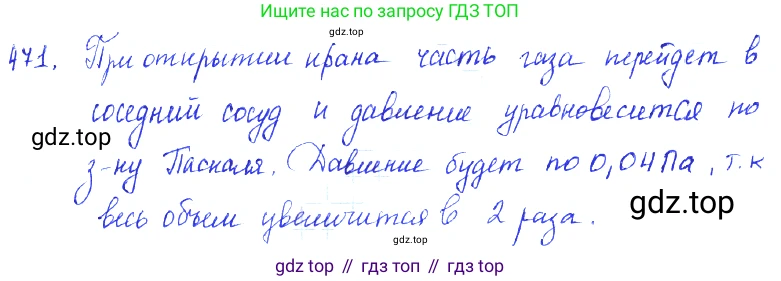 Ищите нас по запросу ГДЗ ТОП
gdz.top
471. При открытии крана часть газа перейдет в
соседний сосуд и давление уравновесится по
gdz.top
з-ну Паскаля. Давление будет по 0,04Па, т.к
весь объем увеличится в 2 раза.
gdz.top
gdz.top
gdz top // гдз топ // gdz top